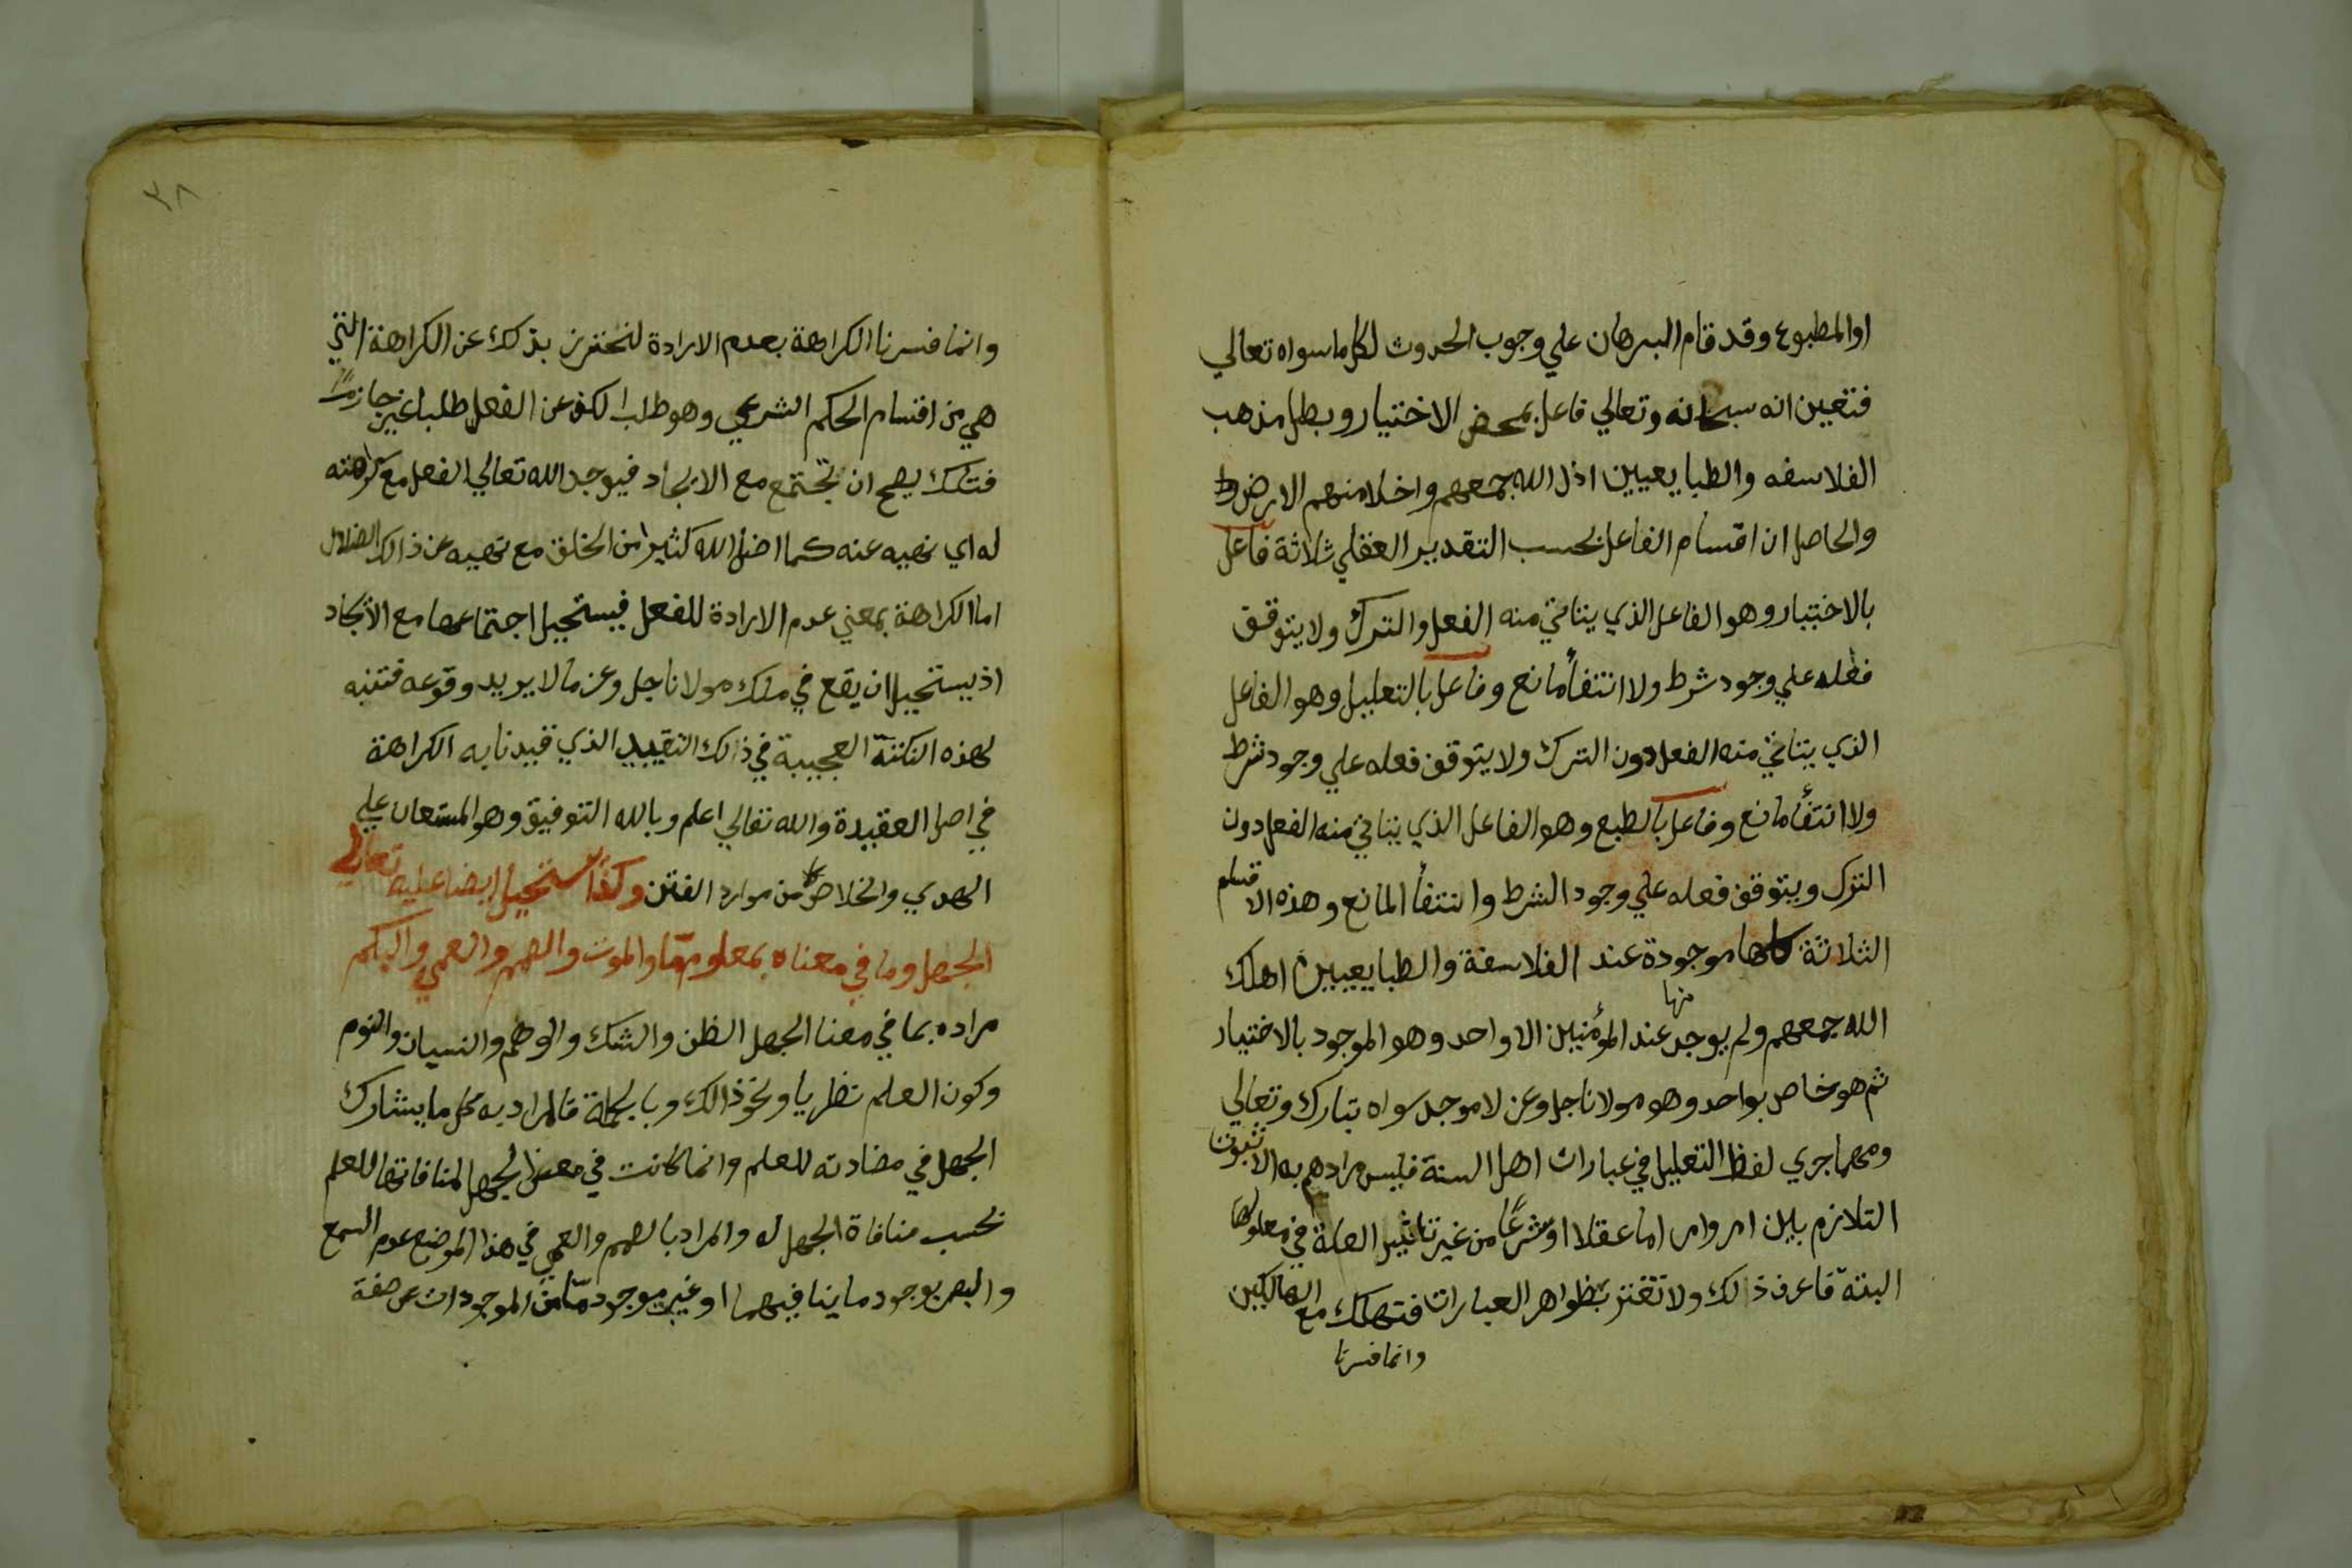 اوالمطبوع وقد قام البرهان علي وجوب الحدوث لكل ما سواه تعالي
فتعين انه سبحانه وتعالي فاعل بمحض الاختيار وبطل مذهب
الفلاسفه والطبايعيين اذل الله جمعهم واخلا منهم الارض
والحاصل ان اقسام الفاعل بحسب التقدير العقلي ثلاثة فاعل
بالاختيار وهو الفاعل الذي يتاتي منه الفعل والترك ولا يتوقف
فعله علي وجود شرط ولا انتفأ مانع وفاعل بالتعليل وهو الفاعل
الذي يتاتي منه الفعل دون الترك ولا يتوقف فعله علي وجود شرط
ولا انتفأ مانع وفاعل بالطبع وهو الفاعل الذي يتاتي منه الفعل دون
الترك ويتوقف فعله علي وجود الشرط وانتفأ المانع وهذه الاقسام
الثلاثة كلها موجودة عند الفلاسفة والطبايعيين اهلك
الله جمعهم ولم يوجد منها عند المؤمنين الا واحد وهو الموجود بالاختيار
ثم هو خاص بواحد وهو مولانا جل وعز لا موجد سواه تبارك وتعالي
ومهما جري لفظ التعليل في عبارات اهل السنة فليس مرادهم به الا ثبوت
التلازم بين امر وامر اما عقلا او شرعًا من غير تاثير العلة في معلولها
البتة فاعرف ذالك ولا تغتر بظواهر العبارات فتهلك مع الهالكين
وانما فسرنا
٣٨
وانما فسرنا الكراهة بعدم الارادة لنحترز بذلك عن الكراهة التي
هي من اقسام الحكم الشرعي وهو طلب الكف عن الفعل طلبا غير جازمًا
فتلك يصح ان تجتمع مع الايجاد فيوجد الله تعالي الفعل مع كراهته
له اي نهيه عنه كما اضل الله كثيرا من الخلق مع نهيه عن ذالك الضلال
اما الكراهة بمعني عدم الارادة للفعل فيستحيل اجتماعها مع الايجاد
اذ يستحيل ان يقع في ملك مولانا جل وعز ما لا يريد وقوعه فتنبه
لهذه النكتة العجيبة في ذالك التقييد الذي قيدنا به الكراهة
في اصل العقيدة والله تعالي اعلم وبالله التوفيق وهو المستعان علي
الهدي والخلاص من موارد الفتن وكذا يستحيل ايضا عليه تعالي
الجهل وما في معناه بمعلوم ما والموت والصمم والعمي والبكم
مراده بما في معنا الجهل الظن والشك والوهم والنسيان والنوم
وكون العلم نظريا ونحو ذالك وبالجملة فالمراد به كل ما يشارك
الجهل في مضادته للعلم وانما كانت في معنى الجهل لمنافاتها للعلم
بحسب منافاة الجهل له والمراد بالصمم والعمي في هذا الموضع عدم السمع
والبصر بوجود ما ينافيهما او غيبة موجود ما من الموجودات عن صفة